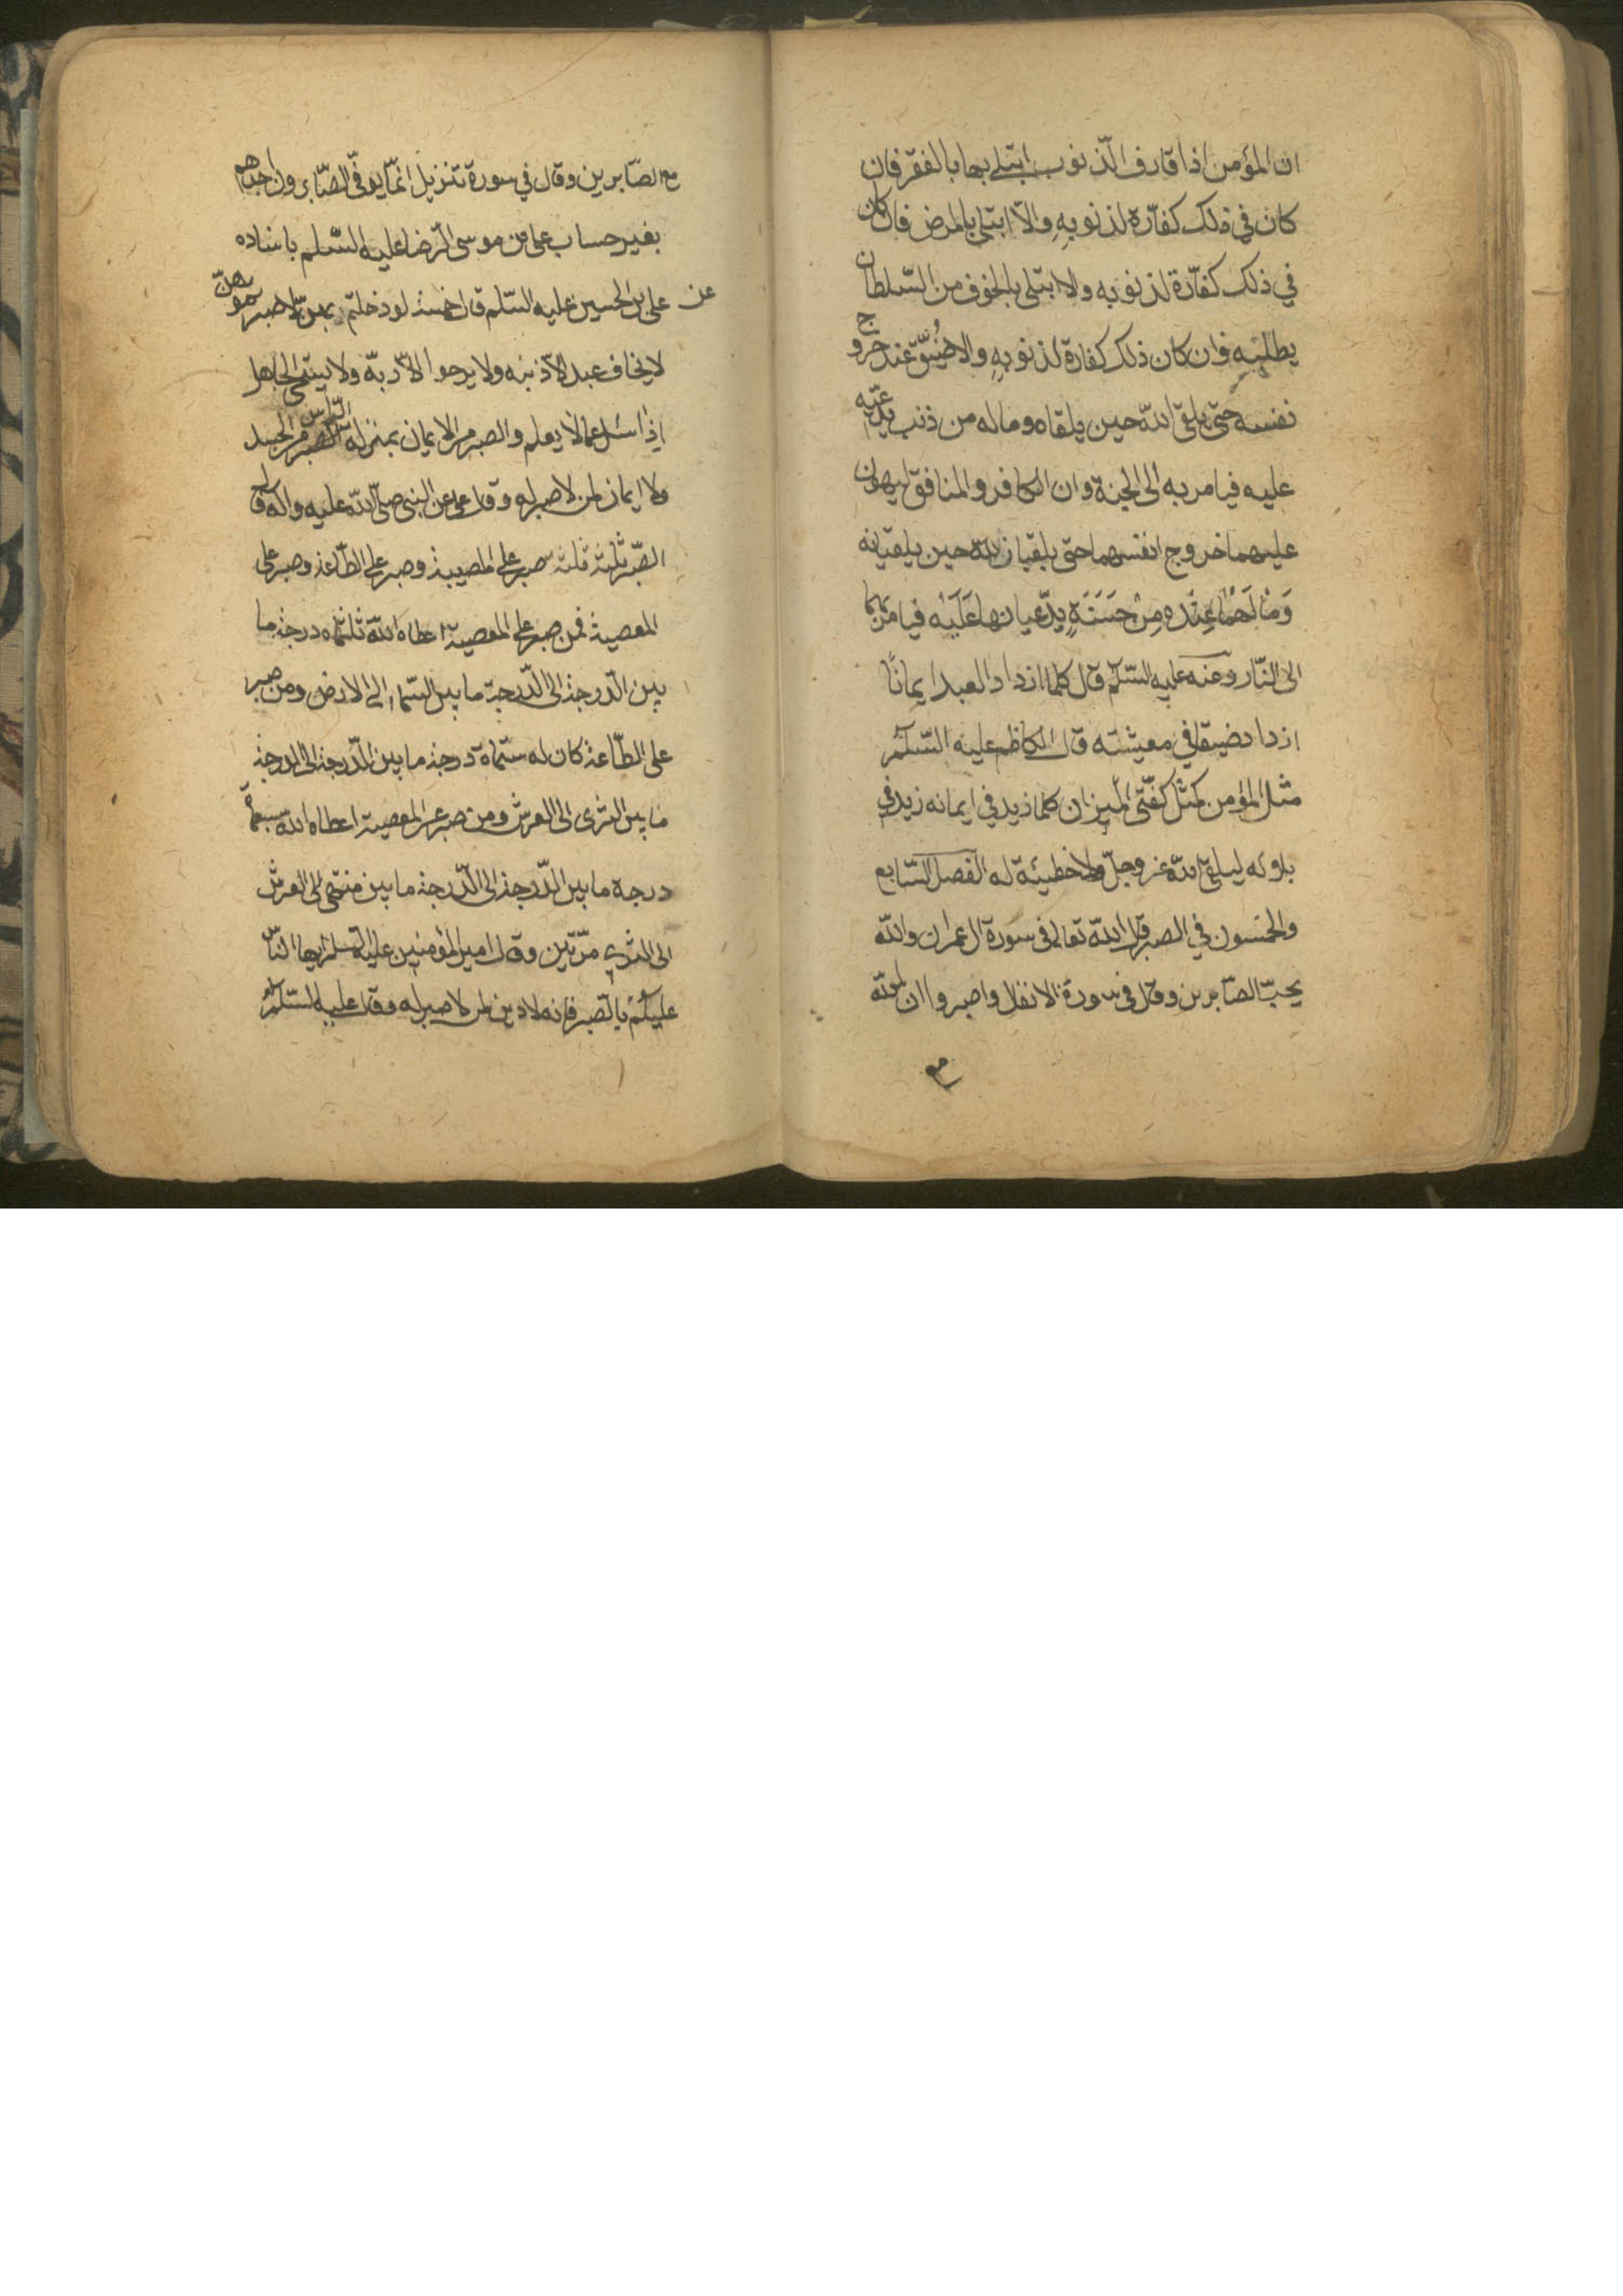 ان المؤمن اذا قارف الذنوب ابتلي بها بالفقر فان
كان في ذلك كفارة لذنوبه والا ابتلي بالمرض فان كان
في ذلك كفارة لذنوبه والا ابتلي بالخوف من السلطان
يطلبه فان كان ذلك كفارة لذنوبه والا ضيق عند خروج
نفسه حتى يلقى الله حين يلقاه وماله من ذنب يدعيه
عليه فيامر به الى الجنة وان الكافر والمنافق ليهون
عليهما خروج انفسهما حتى يلقيان الله حين يلقيانه
وما لهما عنده من حسنة يدعيانها عليه فيامر بهما
الى النار وعنه عليه السلم قال كلما ازداد العبد ايمانا
ازداد ضيقا في معيشته قال الكاظم عليه السلم
مثل المؤمن كمثل كفتي الميزان كلما زيد في ايمانه زيد في
بلوئه ليلقى الله عز وجل ولا خطيئة له الفصل السابع
والخمسون في الصبر قال الله تعالى في سورة ال عمران والله
يحب الصابرين وقال في سورة الانفال واصبروا ان الله
مع
مع الصابرين وقال في سورة تنزيل انما يوفى الصابرون اجرهم
بغير حساب علي بن موسى الرضا عليه السلم باسناده
عن علي بن الحسين عليه السلم قال خمسة لو دخلتم
لا يخاف عبد الا ذنبه ولا يرجوا الا ربه ولا يستحي الجاهل
اذا سئل عما لا يعلم والصبر من الايمان بمنزلة الراس من الجسد
ولا ايمان لمن لا صبر له وقال علي عن النبي صلى الله عليه واله قال
الصبر ثلثة ثلثة صبر على المصيبة وصبر على الطاعة وصبر على
المعصية فمن صبر على المعصية اعطاه الله ثلثماه درجة ما
بين الدرجة الى الدرجة ما بين السماء الى الارض ومن صبر
على الطاعة كان له ستماة درجة ما بين الدرجة الى الدرجة
ما بين الثرى الى العرش ومن صبر عن المعصية اعطاه الله سبعماة
درجة ما بين الدرجة الى الدرجة ما بين منتهى الى العرش
الى الثرى مرتين وقال امير المؤمنين عليه السلم ايها الناس
عليكم بالصبر فانه لا دين لمن لا صبر له وقال عليه السلم